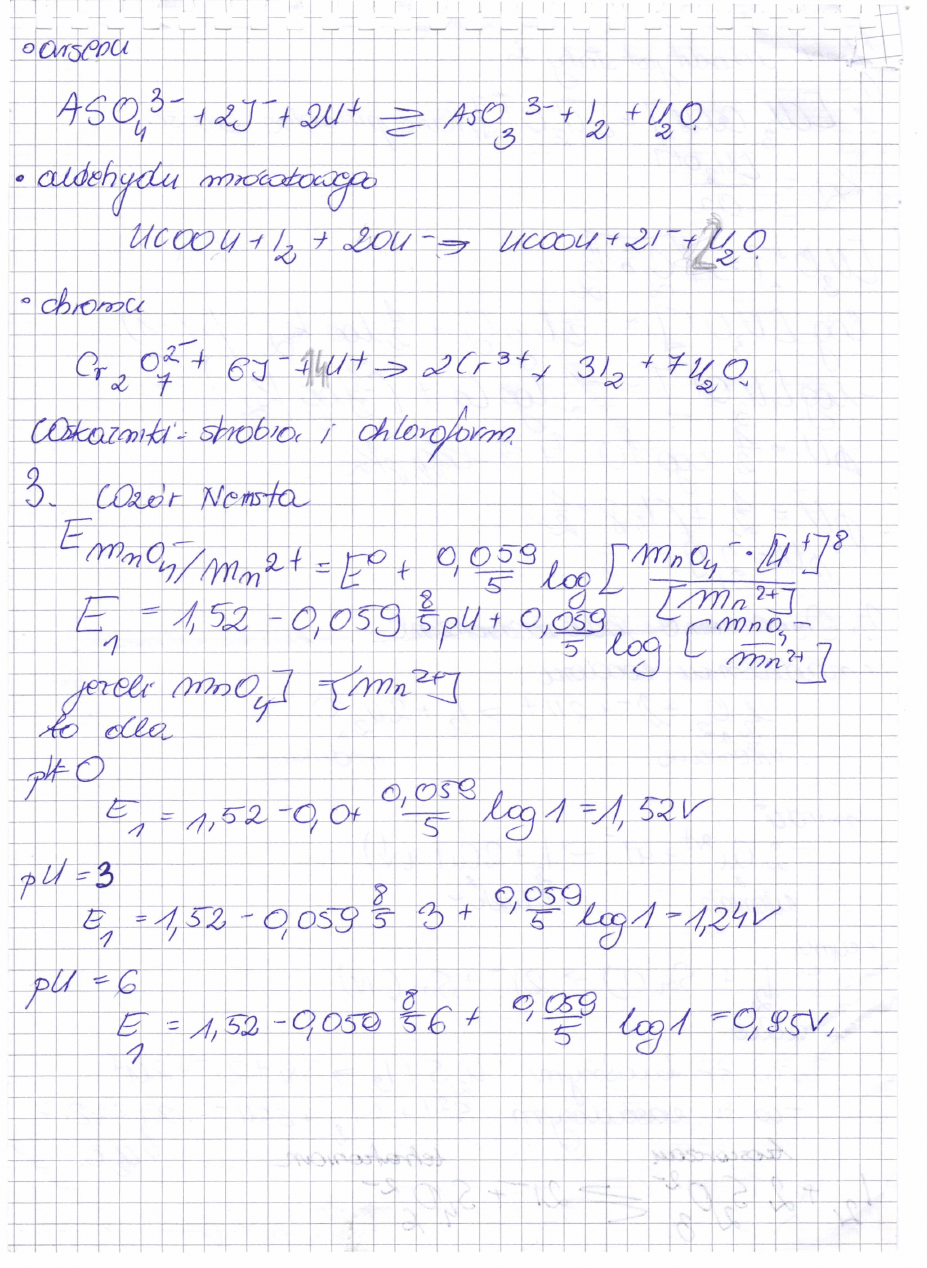 • arsenu
AsO₄³⁻ + 2J⁻ + 2H⁺ ⇌ AsO₃³⁻ + I₂ + H₂O
• aldehydu mrówkowego
HCOOH + I₂ + 2OH⁻ ⇒ HCOOH + 2I⁻ + 2H₂O.
• chromu
Cr₂O₇²⁻ + 6J⁻ + 14H⁺ → 2Cr³⁺ + 3I₂ + 7H₂O.
Wskaźniki: skrobia i chloroform.
3. Wzór Nernsta
E MnO₄⁻/Mn²⁺ = E⁰ + 0,059/5 log [MnO₄⁻ · [H⁺]⁸ / [Mn²⁺]
E₁ = 1,52 - 0,059 8/5 pH + 0,059/5 log [MnO₄⁻ / Mn²⁺]
jeżeli MnO₄] = [Mn²⁺]
to dla
pH=0
E₁ = 1,52 - 0,0 + 0,059/5 log 1 = 1,52V
pH = 3
E₁ = 1,52 - 0,059 8/5 3 + 0,059/5 log 1 = 1,24V
pH = 6
E₁ = 1,52 - 0,059 8/5 6 + 0,059/5 log 1 = 0,95V.